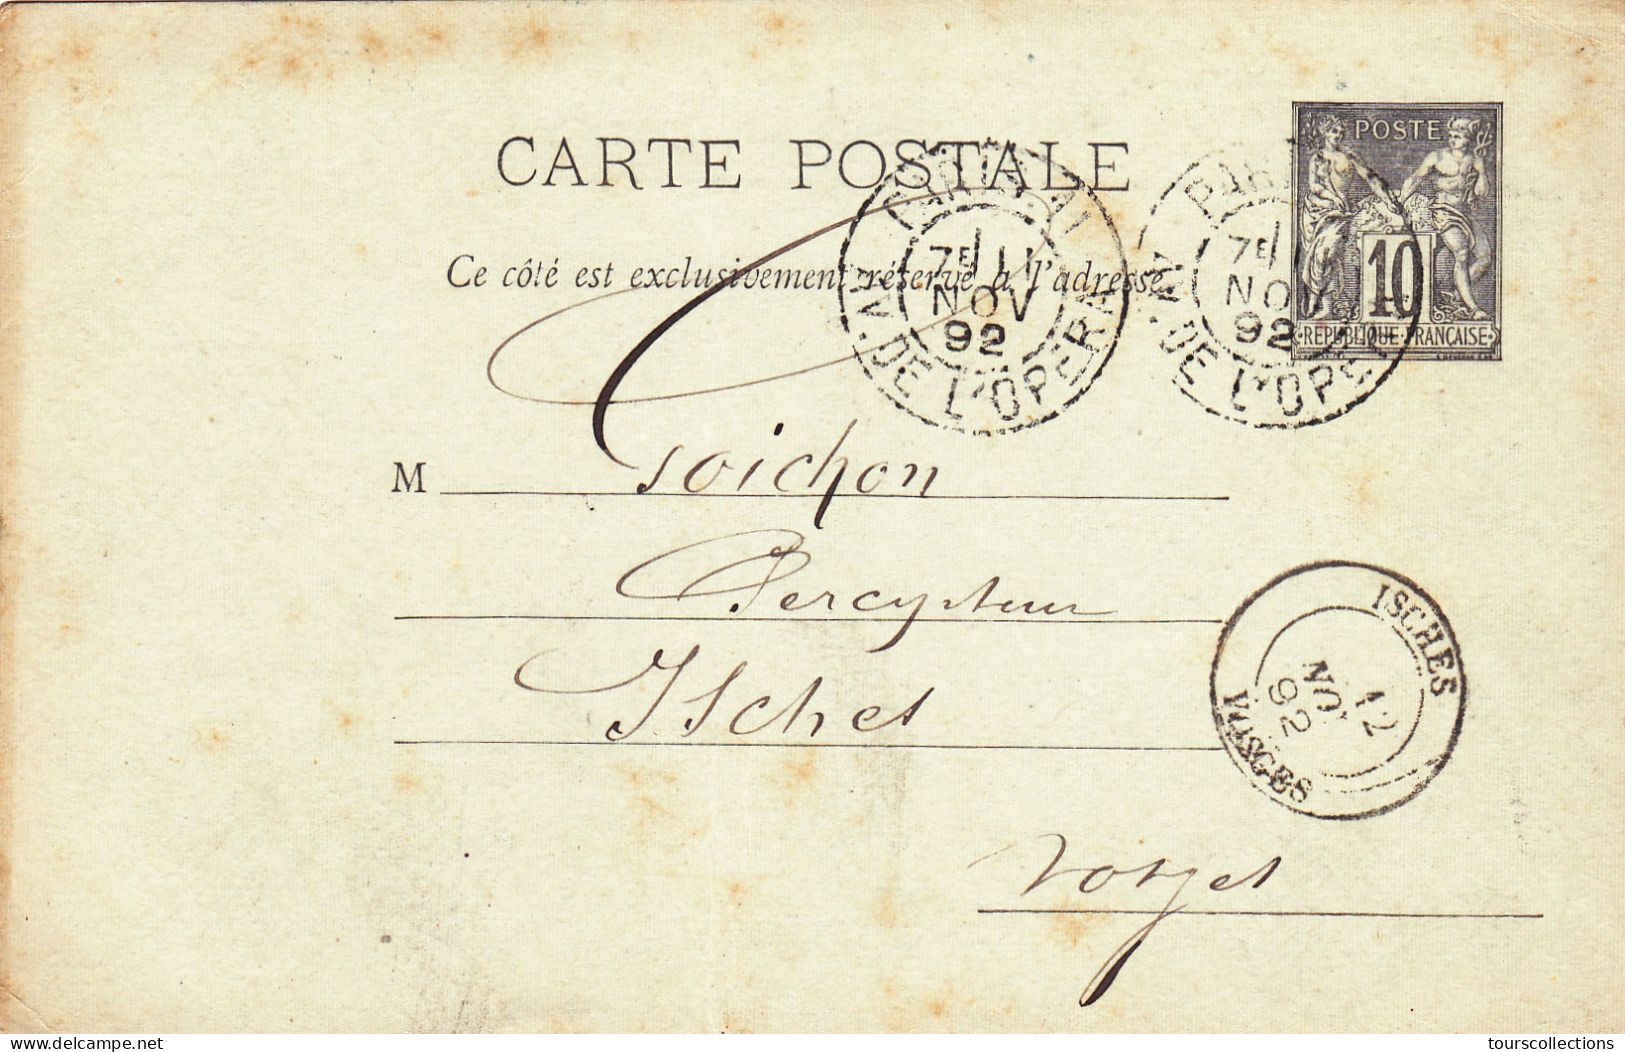 CARTE POSTALE
Ce côté est exclusivement réservé à l'adresse
POSTE
10
RÉPUBLIQUE FRANÇAISE
7E 11
NOV
92
AV. DE L'OPERA
PARIS
7E
NOV
92
AV. DE L'OPERA
M Goichon
Percepteur
Isches
Vosges
ISCHES
12
NOV
92
VOSGES
delcampe.net
tourscollections